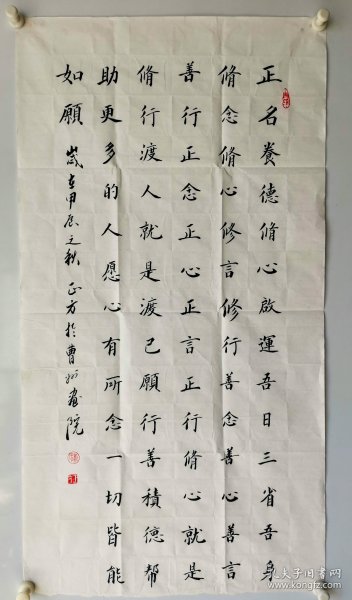 正名養德脩心啟運吾日三省吾身
脩念脩心修言修行善念善心善言
善行正念正心正言正行脩心就是
脩行渡人就是渡己願行善積德幫
助更多的人愿心有所念一切皆能
如願 歲在甲辰之秋 正方於曹州畫院
孔夫子旧书网